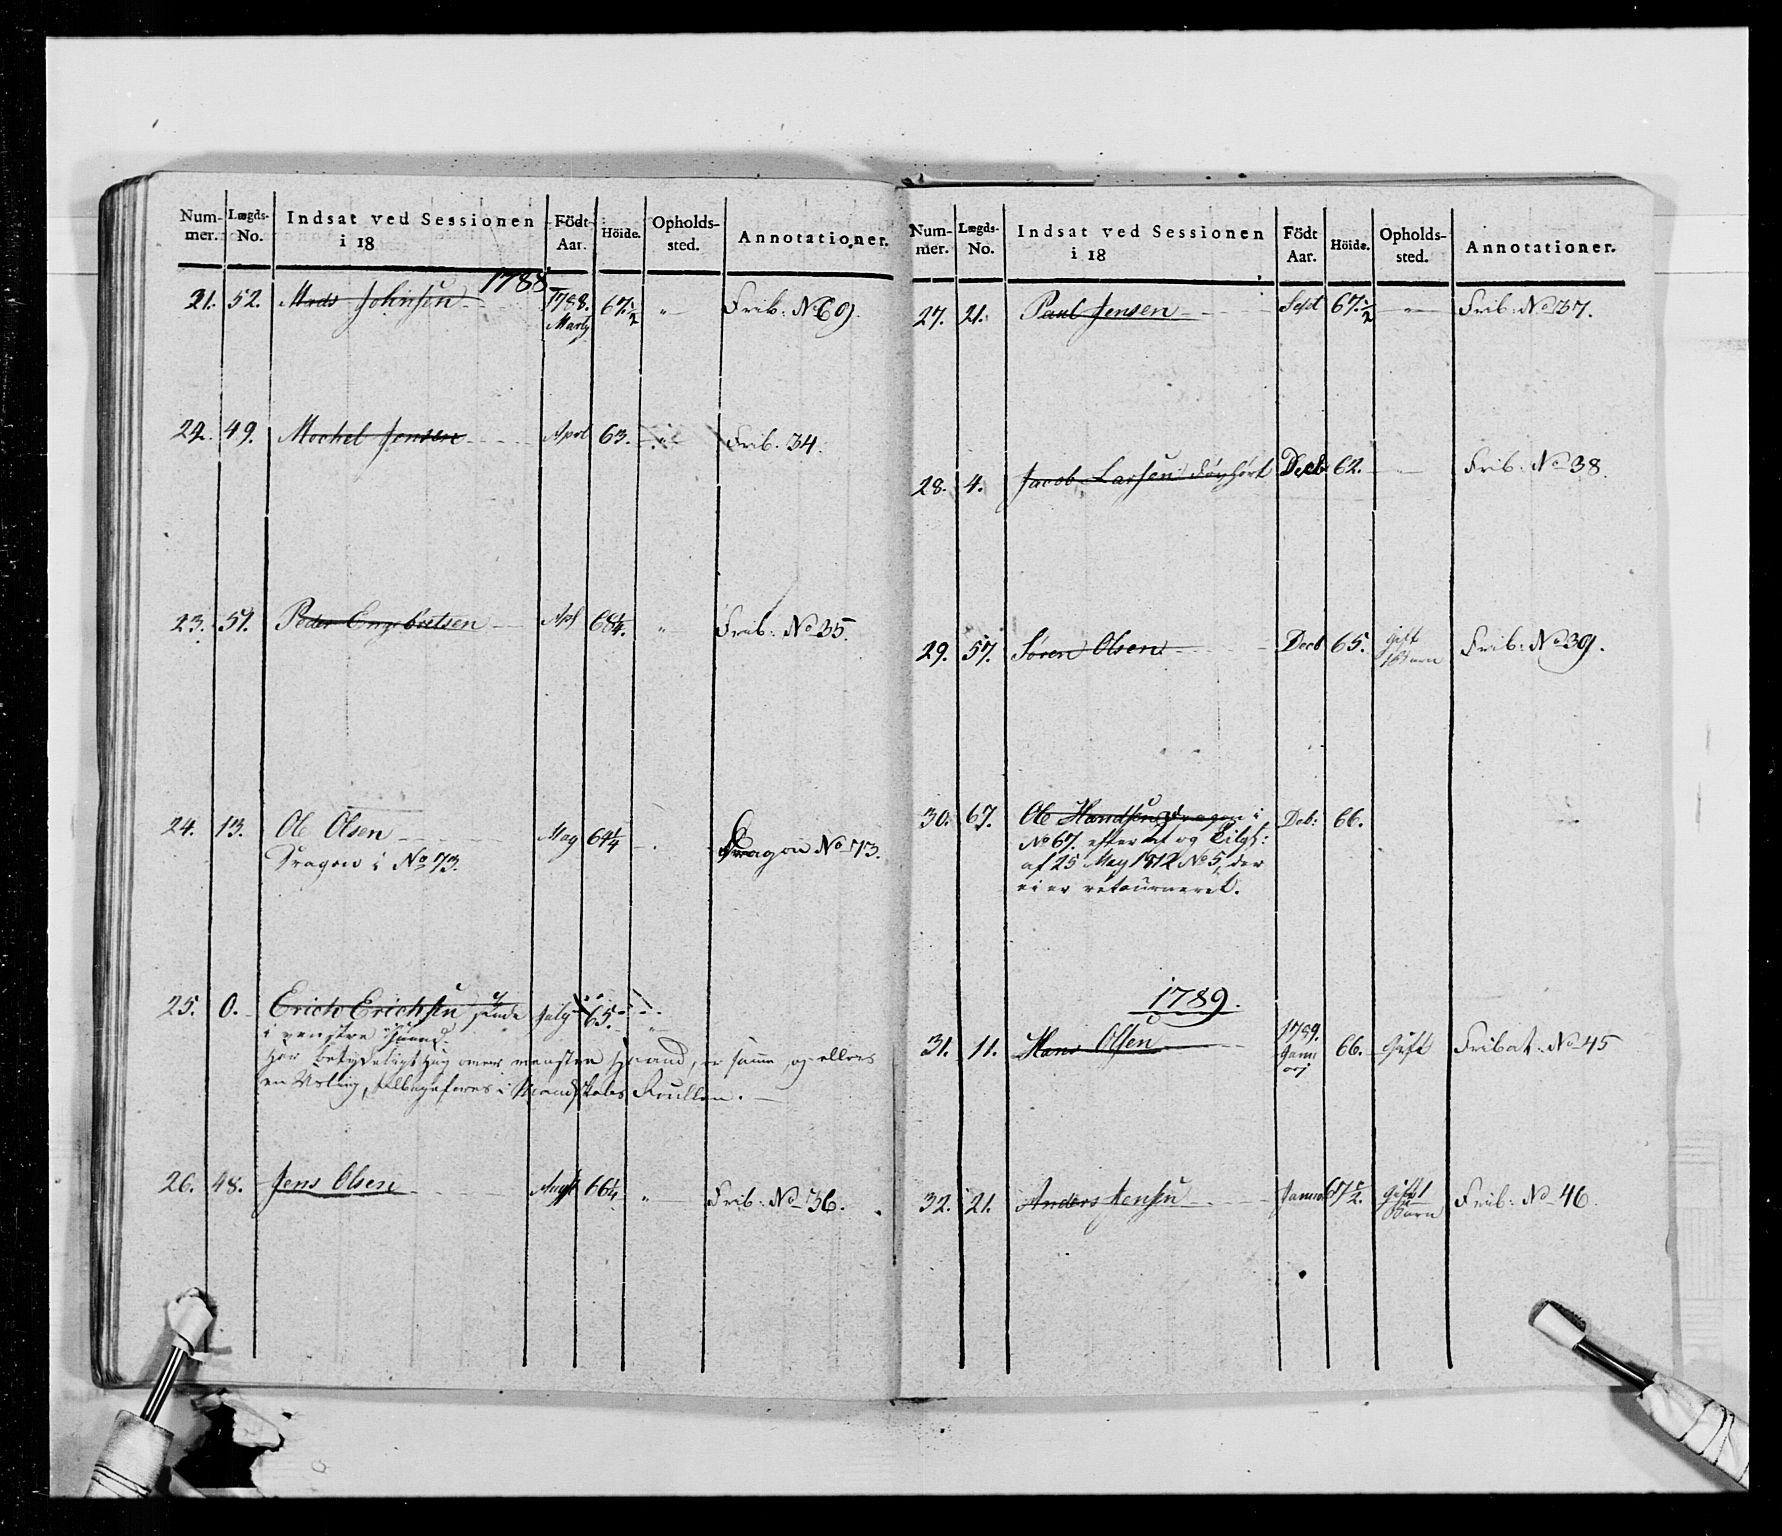 Num-mer. Lægds-No. Indsat ved Sessionen i 18 Födt Aar. Höide. Opholds-sted. Annotationer.
1788
21. 52. Mads Johnsen 1788. Marty 67 1/2 " Frib: No 69.
22. 49. Mechel Jensen Aprl 63. " Frib. 34.
23. 51. Peder Engebretsen Apl 68 1/4. " Frib: No 35.
24. 13. Ole Olsen May 64 1/4 Dragon No 73.
Dragon i No 73.
25. 0. Erich Erichsen July 65. "
i venstre
har
en
Rullen.
26. 48. Jens Olsen Augst 66 1/4 " Frib: No 36.
Num-mer. Lægds-No. Indsat ved Sessionen i 18 Födt Aar. Höide. Opholds-sted. Annotationer.
27. 21. Paul Jensen Sept 67 1/2 " Frib: No 37.
28. 4. Jacob Larsen Decb 62. " Frib: No 38.
29. 57. Søren Olsen Decb 65. Gift 1 Barn Frib: No 39.
30. 67. Ole Handsen Dragon i Deb: 66.
No 67. efter at og Tilgh:
af 25 May 1812 No 5, der
ei er retourneret.
1789.
31. 11. Hans Olsen 1789. Janu arj 66. Gift Fribat: No 45
32. 21. Anders Jensen Janua 67 1/2. Gift 1 Barn Frib: No 46.